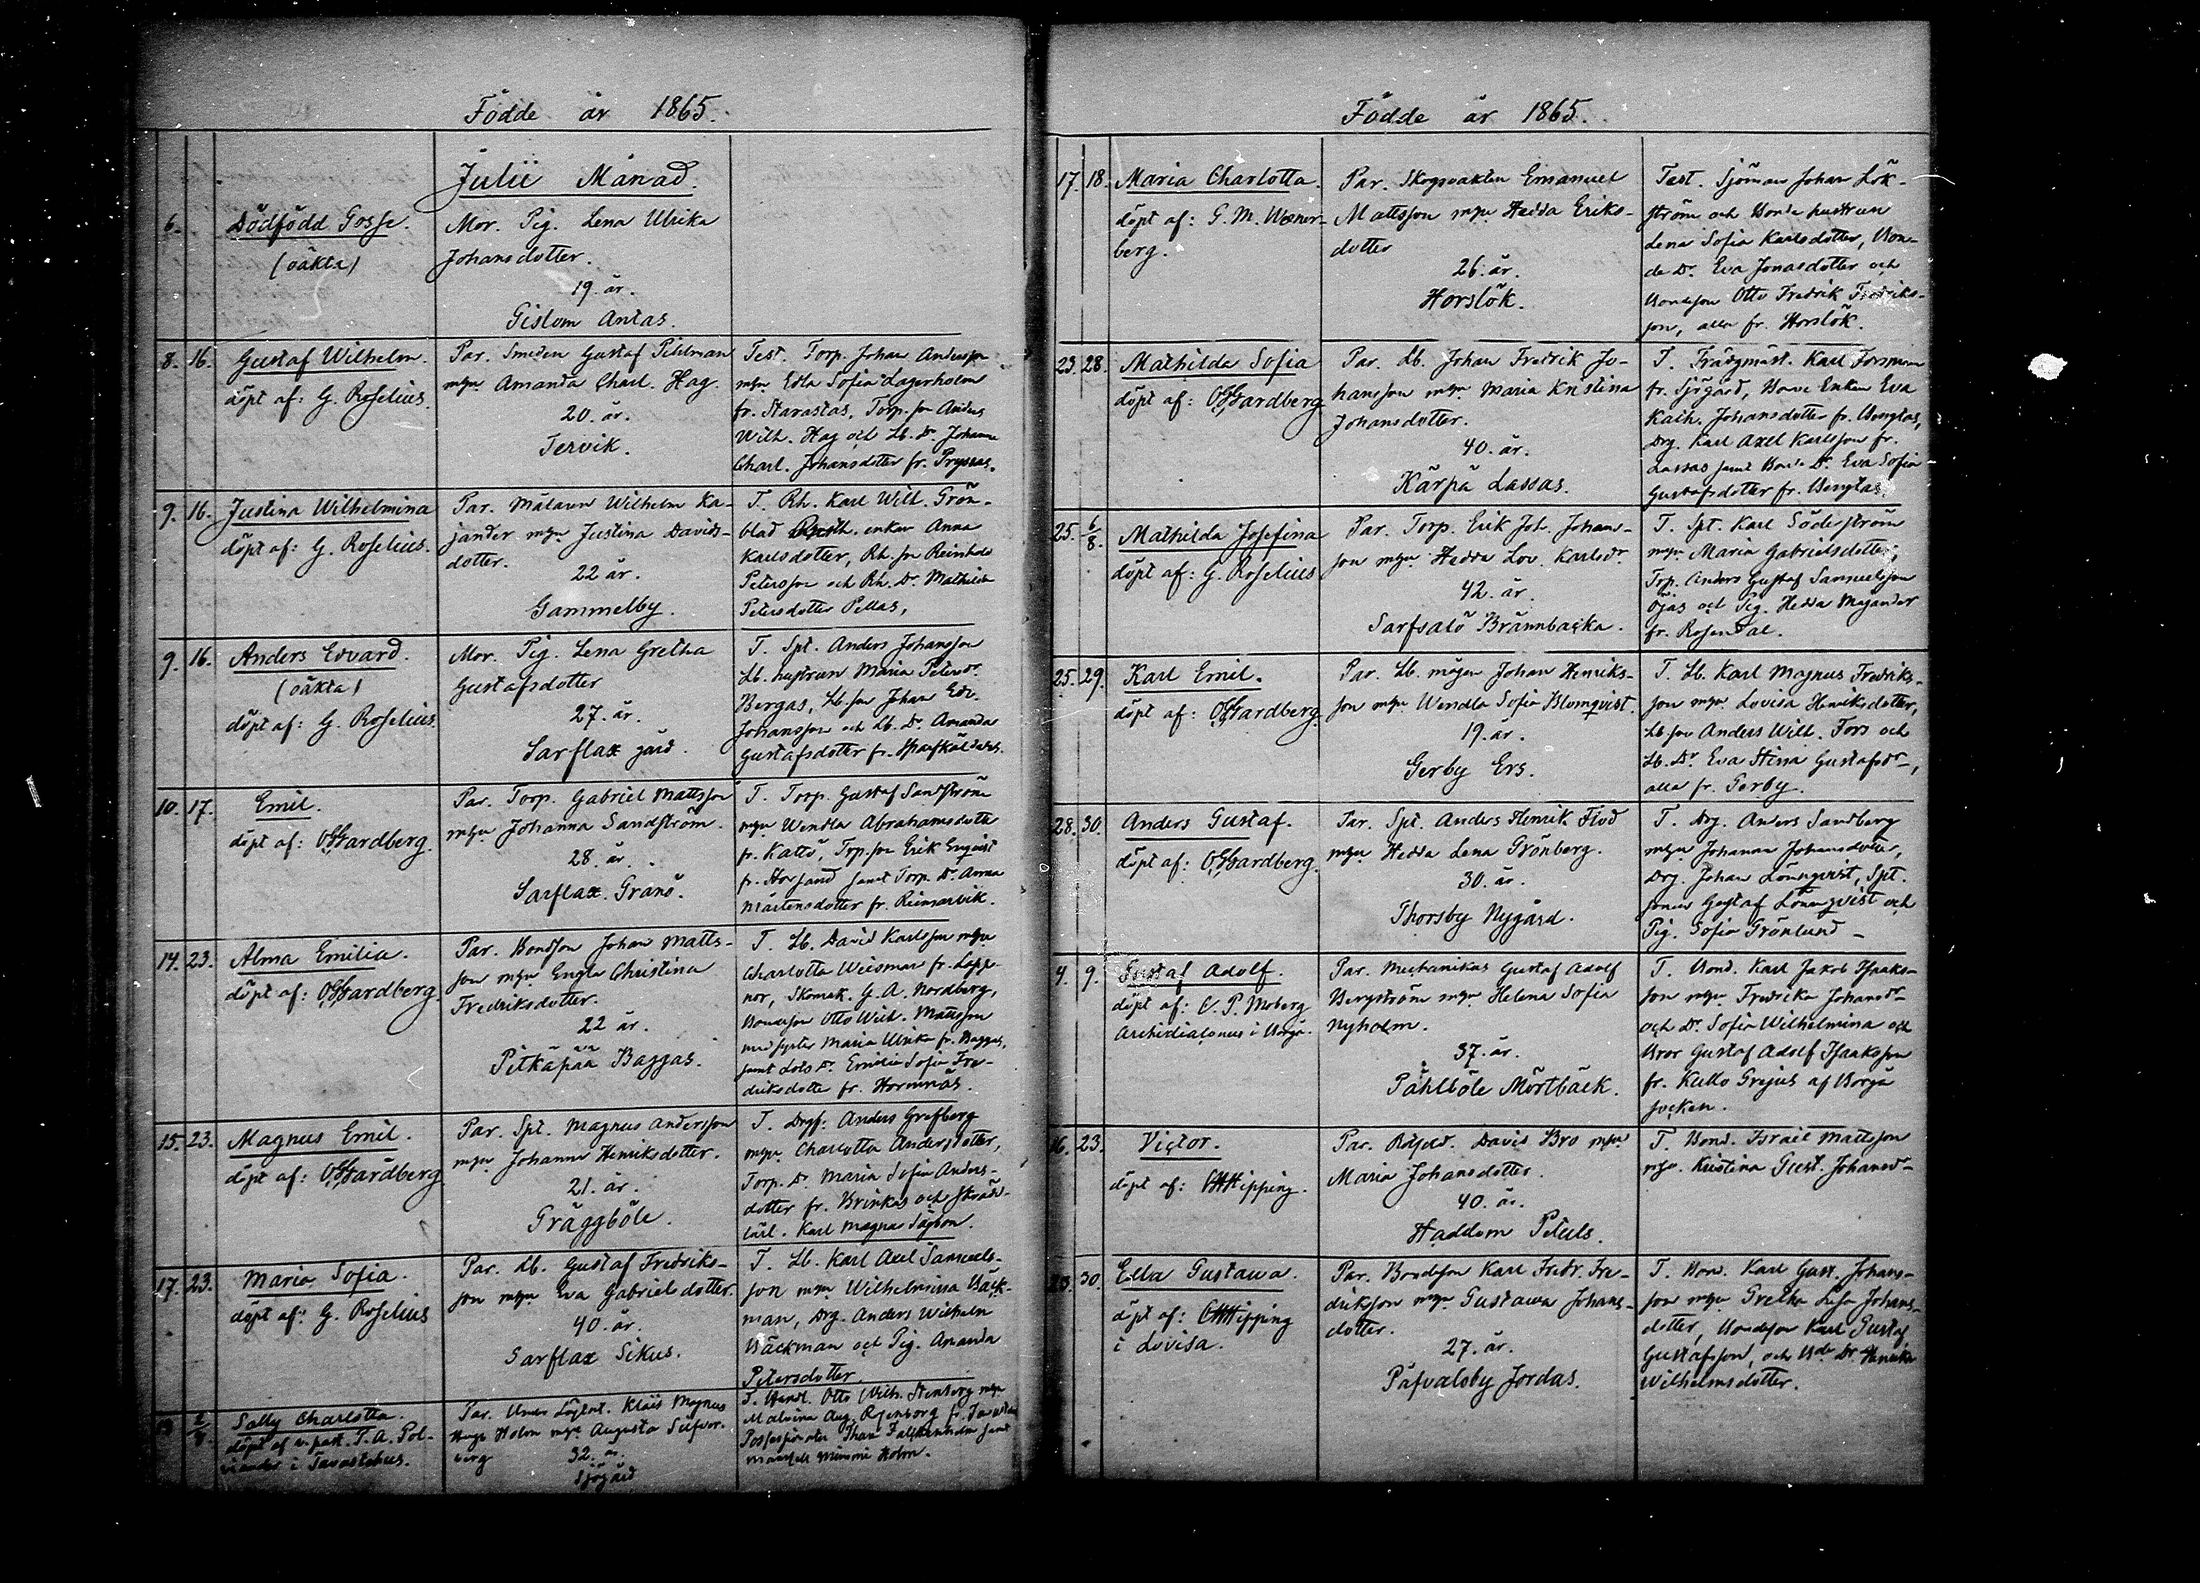 Födde år 1865.
Julii Månad.
6.
Dödfödd Gosse.
(oäkta)
Mor. Pig. Lena Ulrika
Johansdotter.
19. år.
Gislom Antas.
8. 16.
Gustaf Wilhelm.
döpt af: G. Roselius.
Par. Smeden Gustaf Pihlman
m hu Amanda Charl. Hag.
20. år.
Tervik.
Test. Torp. Johan Andersson
m hu Edla Sofia Lagerholm
fr. Starastas, Torp. son Anders
Wilh. Hag och Lb. Dr. Johanna
Charl. Johansdotter fr. Pryssas.
9. 16.
Justina Wilhelmina
döpt af: G. Roselius.
Par. Målaren Wilhelm Ka-
jander m hu Justina Davids-
dotter.
22 år.
Gammelby.
T. Rh. Karl Wilh. Grön-
blad enkan Anna
Karlsdotter, Rh. son Reinhold
Petersson och Rh. Dr. Mathilda
Petersdotter Pellas,
9. 16.
Anders Edvard.
(oäkta)
döpt af: G. Roselius.
Mor. Pig. Lena Gretha
Gustafsdotter
27. år.
Sarflax gård.
T. Spt. Anders Johansson
Lb. hustrun Maria Petersdr
Bergas, Lb. son Johan Edv.
Johansson och Lb. Dr. Amanda
Gustafsdotter fr.
10. 17.
Emil.
döpt af: Gardberg.
Par. Torp. Gabriel Mattsson
m hu Johanna Sandström.
28. år.
Sarflax. Granö.
T. Torp. Gustaf Sandström
m hu Wendla Abrahamsdotter
fr. Kattö, Trp. son Erik Enqvist
fr. samt Torp. Dr. Anna
Mårtensdotter fr. Reimarsvik.
14. 23.
Alma Emilia.
döpt af: Gardberg.
Par. Bondson Johan Matts-
son m hu Engla Christina
Fredriksdotter.
22 år.
Pitkäpää Baggas.
T. Lb. David Karlsson m hu
Charlotta Weisman fr. Lappe-
nor, Skomak. G. A. Nordberg,
Bondeson Otto Wilh. Mattsson
med syster Maria Ulrika fr. Baggas,
samt Lots Dr. Emilia Sofia Fre-
driksdotter fr. Hormnäs.
15. 23.
Magnus Emil.
döpt af: Gardberg
Par. Spt. Magnus Andersson
m hu Johanna Henriksdotter.
21. år.
Gräggböle.
T. Drgf: Anders Grefberg
m hu Charlotta Andersdotter,
Torp. Dr. Maria Sofia Anders-
dotter fr. Brinkas och Skräd.
lärl. Karl Magnus Sågbom.
17. 23.
Maria Sofia.
döpt af: G. Roselius
Par. Lb. Gustaf Fredriks-
son m hu Eva Gabrielsdotter.
40. år.
Sarflax Sikus.
T. Lb. Karl Axel Samuels-
son m hu Wilhelmina Bäck-
man, Drg. Anders Wilhelm
Bäckman och Pig. Amanda
Petersdotter.
Sally Charlotta.
döpt af v. past. T. A. Pol-
viander i Tavastehus.
Par. Under Löjtnt. Klaës Magnus
Hugo Holm m hu Augusta Silfver-
berg 32. år.
Sjögård
T. Handl. Otto Wilh. Stenberg m hu
Malvina Aug. Rosenborg fr.
Possessionaten samt
Mamsell Mimmi Holm.
Födde år 1865.
17. 18.
Maria Charlotta.
döpt af: G. M. Waener-
berg.
Par. Skogvakten Emanuel
Mattsson m hu Hedda Eriks-
dotter
26. år.
Horslök.
Test. Sjöman Johan Lök-
ström och Bonde hustrun
Lena Sofia Karlsdotter, Bon-
de Dr. Eva Jonasdotter och
Bondeson Otto Fredrik Fredriks-
son, alla fr. Horslök.
23. 28.
Mathilda Sofia
döpt af: Gardberg
Par. Lb. Johan Fredrik Jo-
hansson m hu Maria Kristina
Johansdotter.
40. år.
Kärpä Lassas.
T. Trädgmäst. Karl Forsman
fr. Sjögård, Bonde Enkan Eva
Kath. Johansdotter fr. Bengtas,
Drg. Karl Axel Karlsson fr.
Lassas samt Bonde Dr. Eva Sofia
Gustafsdotter fr. Bengtas.
25. 6/8.
Mathilda Josefina
döpt af: G. Roselius
Par. Torp. Erik Joh. Johans-
son m hu Hedda Lov. Karlsdr
42. år.
Sarfsalö Brännbacka.
T. Spt. Karl Söderström
m hu Maria Gabrielsdotter,
Trp. Anders Gustaf Samuelsson
Öjas och Pig. Hedda Majander
fr. Rosendal.
25. 29.
Karl Emil.
döpt af: Gardberg.
Par. Lb. mågen Johan Henriks-
son m hu Wendla Sofia Blomqvist.
19. år.
Gerby Ers.
T. Lb. Karl Magnus Fredriks-
son m hu Lovisa Henriksdotter,
Lb son Anders Wilh. Fors och
Lb. Dr. Eva Stina Gustafsdr,
alla fr. Gerby.
28. 30.
Anders Gustaf.
döpt af: Gardberg.
Par. Spt. Anders Henrik Flod
m hu Hedda Lena Grönberg.
30. år.
Thorsby Nygård.
T. Drg. Anders Sandberg
m hu Johanna Johansdotter,
Drg. Johan Lönnqvist, Spt.
sonen Gustaf Lönnqvist och
Pig. Sofia Grönlund –
4. 9.
Gustaf Adolf.
döpt af: C. P. Moberg
Archidiakonus i Borgå.
Par. Mechanikus Gustaf Adolf
Bergström m hu Helena Sofia
Nyholm.
37. år.
Påhlböle Mörtbäck.
T. Bond. Karl Jakob Isaaks-
son m hu Fredrika Johansdr
och Dr. Sofia Wilhelmina och
Bror Gustaf Adolf Isaaksson
fr. Kullo Grejus af Borgå
socken.
16. 23.
Victor.
döpt af: Hipping.
Par. David Bro m hu
Maria Johansdotter.
40. år.
Haddom Petuls.
T. Bond. Israël Mattsson
m hu. Kristina Gust. Johansdr
23. 30.
Ella Gustava.
döpt af: Hipping
i Lovisa.
Par. Bondeson Karl Fredr. Fre-
driksson m hu Gustava Johans-
dotter.
27. år.
Påfvalsby Jordas.
T. Bond. Karl Gust. Johans-
son m hu Gretha Lisa Johans-
dotter, Bondeson Karl Gustaf
Gustafsson, och Bde Dr.
Wilhelmsdotter.